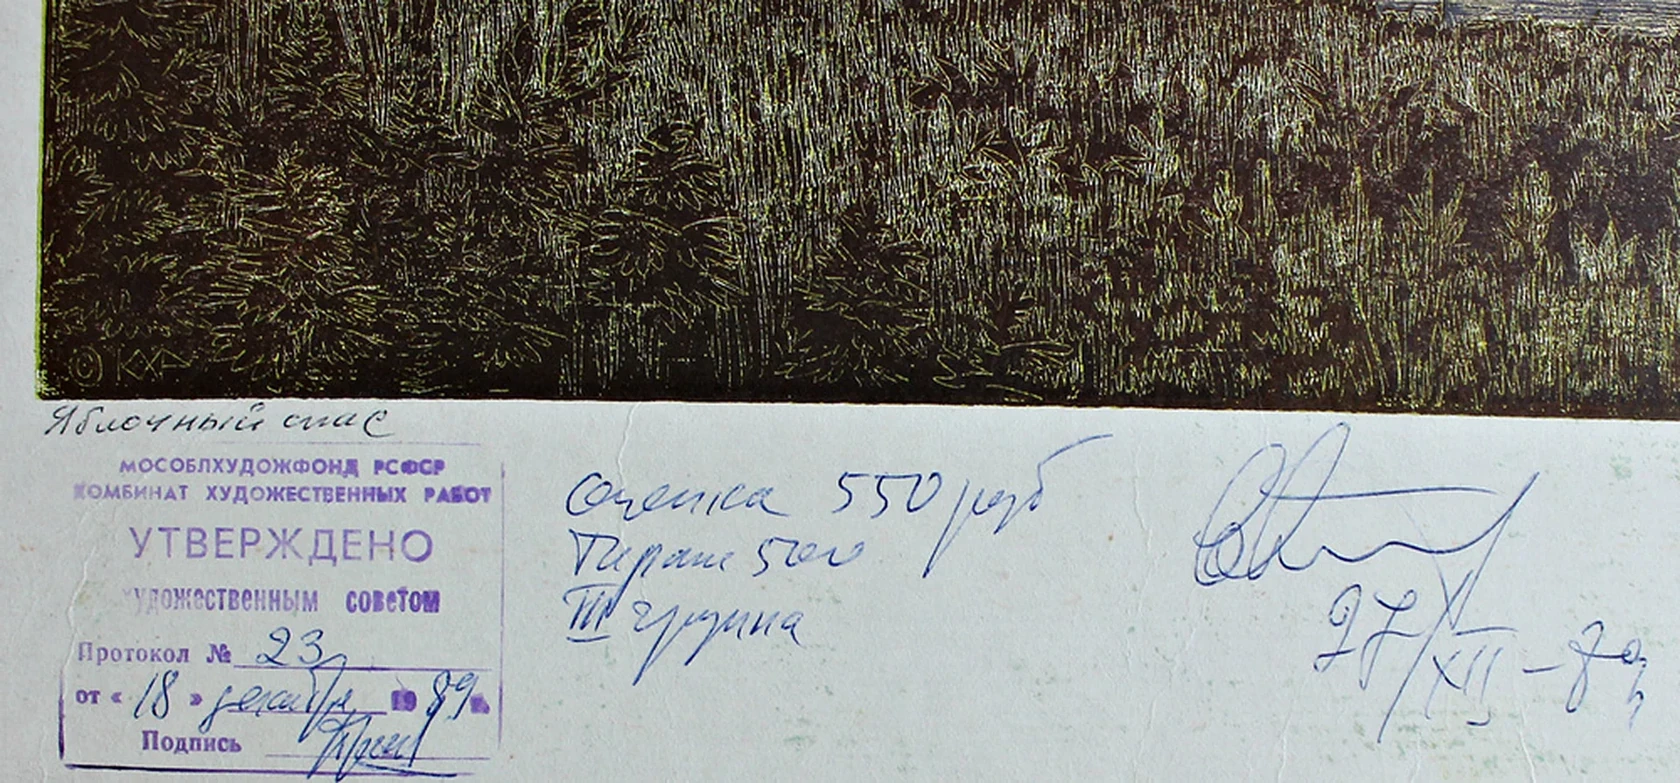 © КХА
Яблочный спас
МОСОБЛХУДОЖФОНД РСФСР
КОМБИНАТ ХУДОЖЕСТВЕННЫХ РАБОТ
УТВЕРЖДЕНО
художественным советом
Протокол № 23
от « 18 » декабря 1989 г.
Подпись
Оценка 550 руб
Тираж 500
III группа
27/XII-89